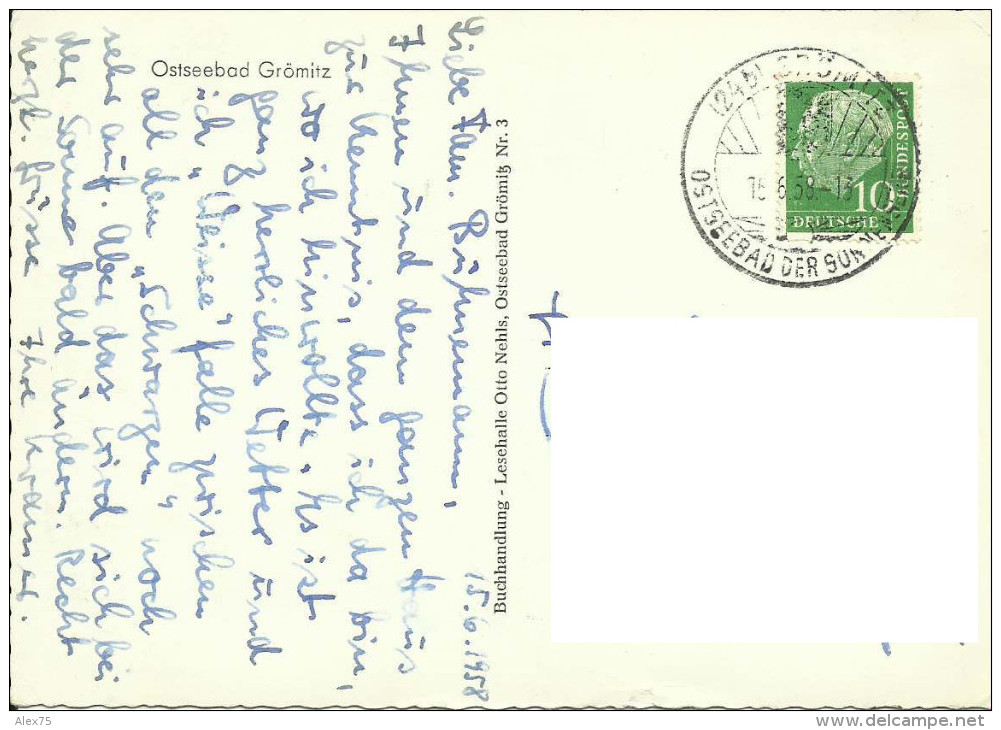 Ostseebad Grömitz
15.6.1958
Liebe Fam. Bühnemann,
Ihnen und dem ganzen Haus
zur Kenntnis, dass ich da bin,
wo ich hinwollte. Es ist
ganz herrliches Wetter und
ich „Weisse" falle zwischen
all den „Schwarzen" noch
sehr auf. Aber das wird sich bei
der Sonne bald ändern. Recht
herzl. Grüsse Ihre
Buchhandlung - Lesehalle Otto Nehls, Ostseebad Grömitz Nr. 3
(24b) GRÖMITZ
OSTSEEBAD DER SONNENSEITE
15.6.58-13
10
DEUTSCHE BUNDESPOST
Alex75
delcampe.net